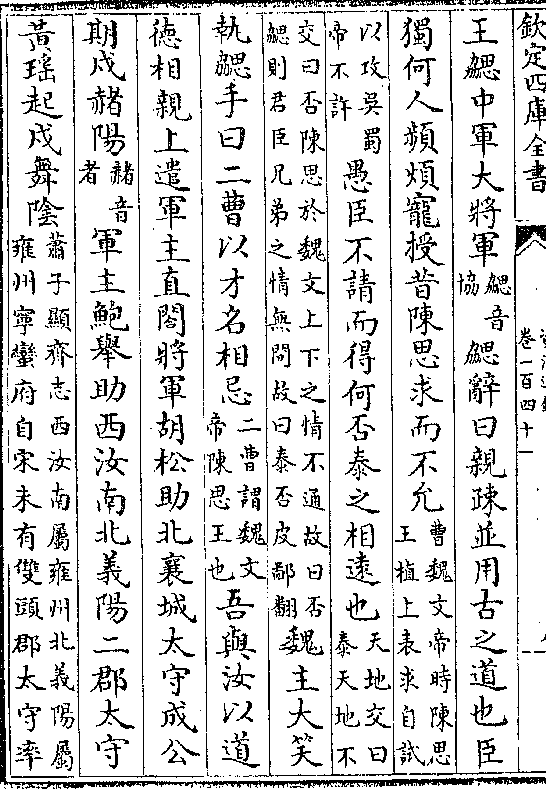 欽定四庫全書
卷一百四十一
王勰中軍大將軍勰音協勰辭曰親疎並用古之道也臣
獨何人頻煩寵授昔陳思求而不允曹魏文帝時陳思王植上表求自試
以攻吳蜀帝不許愚臣不請而得何否泰之相遠也天地交曰泰天地不
交曰否陳思於魏文上下之情不通故曰否勰則君臣兄弟之情無間故曰泰否皮鄙翻魏主大笑
執勰手曰二曹以才名相忌二曹謂魏文帝陳思王也吾與汝以道
徳相親上遣軍主直閤將軍胡松助北襄城太守成公
期戍赭陽赭音者軍主鮑舉助西汝南北義陽二郡太守
黃瑤起戍舞陰蕭子顯齊志西汝南屬雍州北義陽屬雍州寧蠻府自宋末有雙頭郡太守率